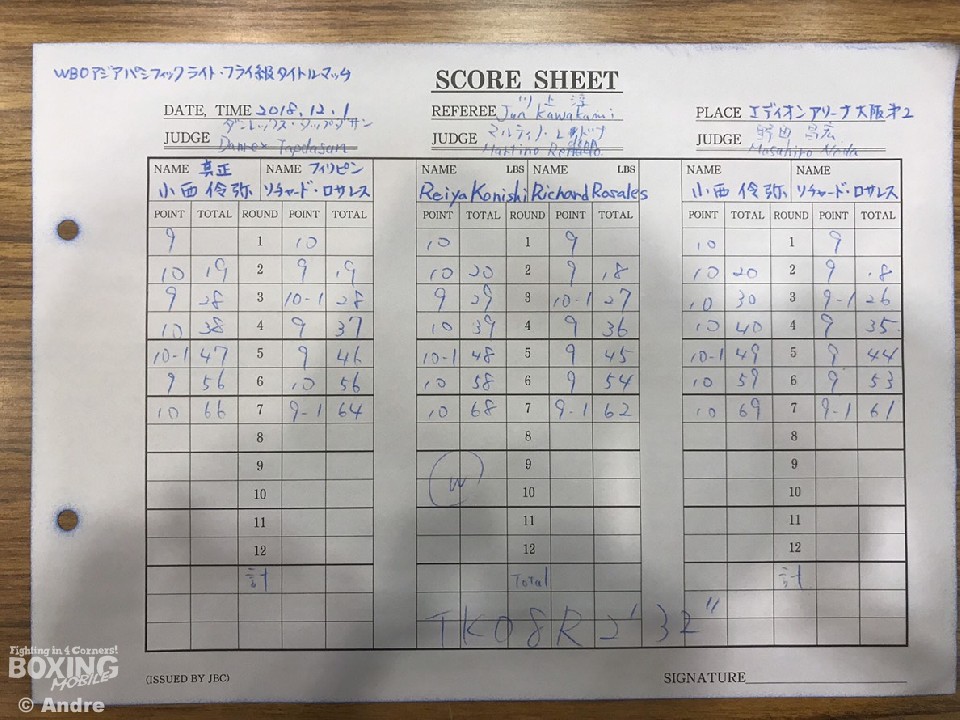 WBOアジアパシフィックライト・フライ級タイトルマッチ
SCORE SHEET
DATE, TIME 2018.12.1
REFEREE 川上 淳 Jun Kawakami
PLACE エディオンアリーナ大阪第2
JUDGE ダンレックス・タップダサン Danrex Tapdasan
JUDGE
JUDGE 野田 昌宏 Masahiro Noda
NAME 真正 NAME フィリピン
NAME LBS NAME LBS
NAME NAME
小西 伶弥 リチャード・ロサレス
Reiya Konishi Richard Rosales
小西 伶弥 リチャード・ロサレス
POINT TOTAL ROUND POINT TOTAL POINT TOTAL ROUND POINT TOTAL POINT TOTAL ROUND POINT TOTAL
9 1 10 10 1 9 10 1 9
10 19 2 9 19 10 20 2 9 18 10 20 2 9 18
9 28 3 10-1 28 9 29 3 10-1 27 10 30 3 9-1 26
10 38 4 9 37 10 39 4 9 36 10 40 4 9 35
10-1 47 5 9 46 10-1 48 5 9 45 10-1 49 5 9 44
9 56 6 10 56 10 58 6 9 54 10 59 6 9 53
10 66 7 9-1 64 10 68 7 9-1 62 10 69 7 9-1 61
8 8 8
9 9 9
W
10 10 10
11 11 11
12 12 12
計 Total 計
TKO 8R 2'32"
(ISSUED BY JBC)
SIGNATURE
Fighting in 4 Corners!
BOXING
MOBILE
© Andre